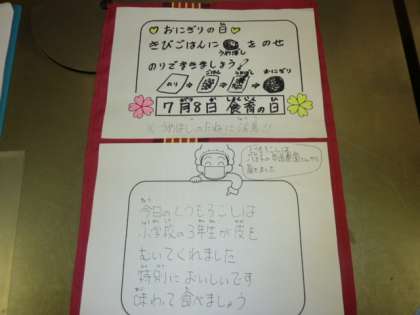 おにぎりの日
きびごはんに を のせ
うめぼし
のりでまきましょう
のり
ごはん
うめぼし
おにぎり
7月8日 食育の日
※うめぼしのたねに注意!!
とうもろこしは
届きました
今日のとうもろこしは
小学校の3年生が皮を
むいてくれました
特別においしいです
味わって食べましょう